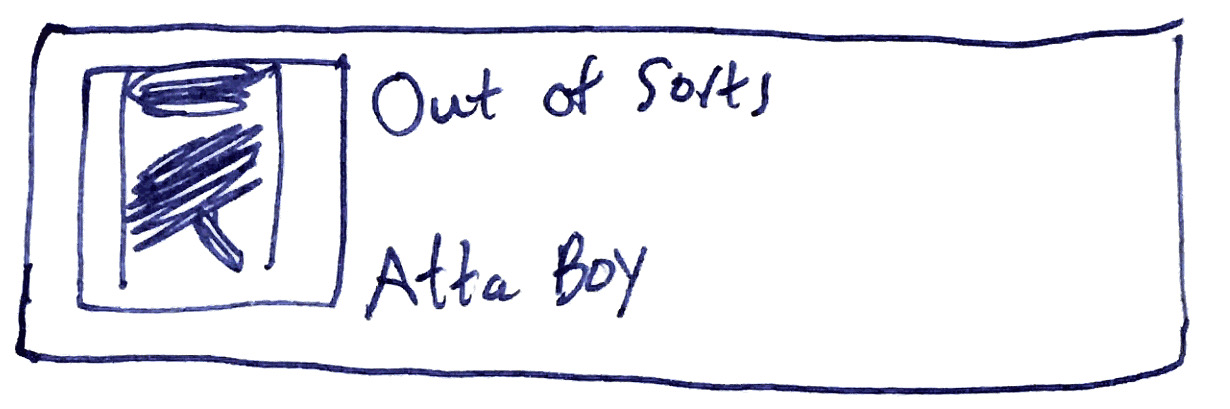 Out of Sorts
Atta Boy